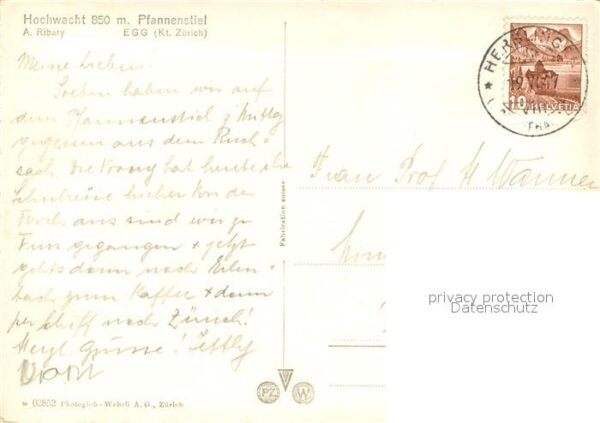 Hochwacht 850 m. Pfannenstiel
A. Ribary EGG (Kt. Zürich)
Meine Lieben!
Soeben haben wir auf
dem Pfannenstiel z' Mittag
gegessen aus dem Ruck-
sack. Die hat heute ihre
Schulreise hierher. Von der
Forch aus sind wir zu
Fuss gegangen + jetzt
gehts dann nach Erlen-
bach zum Kaffee + dann
per Schiff nach Zürich!
Herzl. Grüsse!
Fabrication suisse
HELVETIA
10
Frau Prof. H. Wanner
privacy protection
Datenschutz
PZ W
W 02852 Photoglob-Wehrli A. G., Zürich